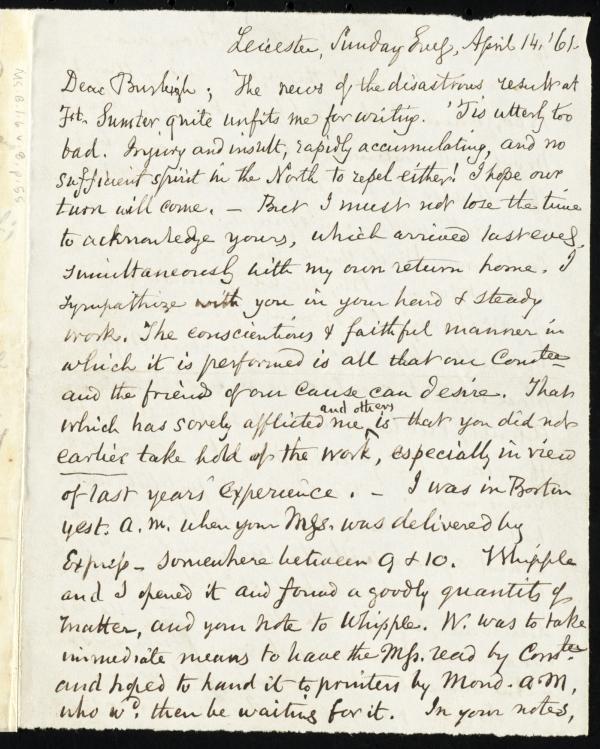 Leicester, Sunday Eveg, April 14, '61.
Dear Burleigh; The news of the disastrous result at
Ft. Sumter quite unfits me for writing. 'Tis utterly too
bad. Injury and insult, rapidly accumulating, and no
sufficient spirit in the North to repel either! I hope our
turn will come. – But I must not lose the time
to acknowledge yours, which arrived last eveg,
simultaneously with my own return home. I
sympathize with you in your hard & steady
work. The conscientious & faithful manner in
which it is performed is all that our Comtee
and the friends of our cause can desire. That
which has sorely afflicted me and others is that you did not
earlier take hold of the work, especially in view
of last years' experience. – I was in Boston
yest. a.m. when your Mss. was delivered by
Express – somewhere between 9 & 10. Whipple
and I opened it and found a goodly quantity of
matter, and your note to Whipple. W. was to take
immediate means to have the Mss. read by Comtee
and hoped to hand it to printers by Mond. a.m,
who wd. then be waiting for it. In your notes,
Ms. B.1.6 v.8 p.55